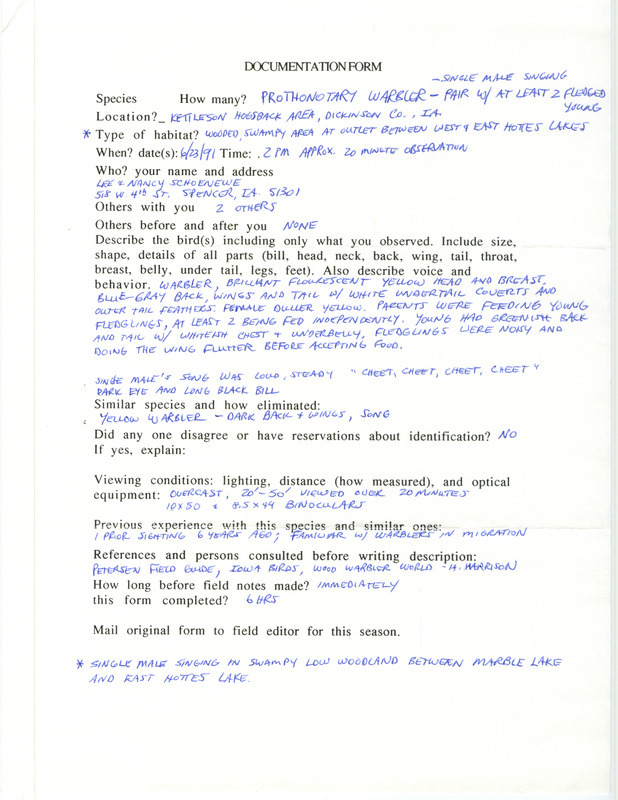 DOCUMENTATION FORM
- SINGLE MALE SINGING
Species How many? PROTHONOTARY WARBLER - PAIR W/ AT LEAST 2 FLEDGED
YOUNG
Location? KETTLESON HOGSBACK AREA, DICKINSON CO., IA.
* Type of habitat? WOODED, SWAMPY AREA AT OUTLET BETWEEN WEST & EAST HOTTES LAKES
When? date(s): 6/23/91 Time: . 2 PM APPROX. 20 MINUTE OBSERVATION
Who? your name and address
LEE & NANCY SCHOENEWE
518 W. 4th ST. SPENCER, IA. 51301
Others with you 2 OTHERS
Others before and after you NONE
Describe the bird(s) including only what you observed. Include size,
shape, details of all parts (bill, head, neck, back, wing, tail, throat,
breast, belly, under tail, legs, feet). Also describe voice and
behavior. WARBLER, BRILLIANT FLOURESCENT YELLOW HEAD AND BREAST,
BLUE-GRAY BACK, WINGS AND TAIL W/ WHITE UNDERTAIL COVERTS AND
OUTER TAIL FEATHERS. FEMALE DULLER YELLOW. PARENTS WERE FEEDING YOUNG
FLEDGLINGS, AT LEAST 2 BEING FED INDEPENDENTLY. YOUNG HAD GREENISH BACK
AND TAIL W/ WHITEISH CHEST & UNDERBELLY, FLEDGLINGS WERE NOISY AND
DOING THE WING FLUTTER BEFORE ACCEPTING FOOD.
SINGLE MALE'S SONG WAS LOUD, STEADY "CHEET, CHEET, CHEET, CHEET"
DARK EYE AND LONG BLACK BILL
Similar species and how eliminated:
YELLOW WARBLER - DARK BACK & WINGS, SONG
Did any one disagree or have reservations about identification? NO
If yes, explain:
Viewing conditions: lighting, distance (how measured), and optical
equipment: OVERCAST, 20'-50' VIEWED OVER 20 MINUTES
10X50 & 8.5X44 BINOCULARS
Previous experience with this species and similar ones:
1 PRIOR SIGHTING 6 YEARS AGO; FAMILIAR W/ WARBLERS IN MIGRATION
References and persons consulted before writing description:
PETERSEN FIELD GUIDE, IOWA BIRDS, WOOD WARBLER WORLD - H. HARRISON
How long before field notes made? IMMEDIATELY
this form completed? 6 HRS
Mail original form to field editor for this season.
* SINGLE MALE SINGING IN SWAMPY LOW WOODLAND BETWEEN MARBLE LAKE
AND EAST HOTTES LAKE.